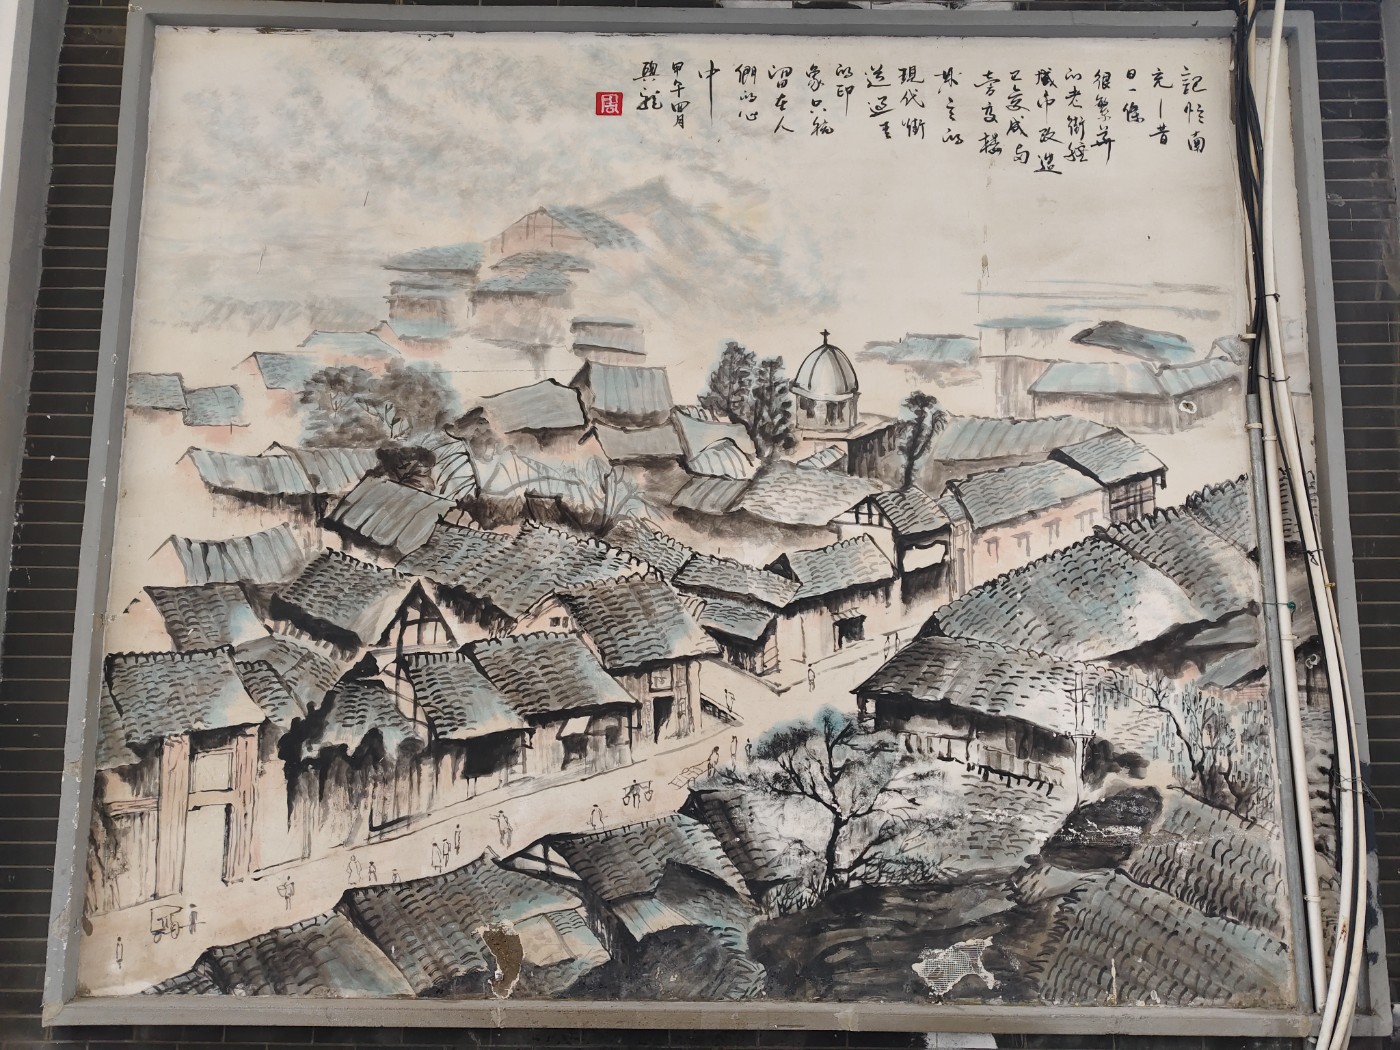 記憶南
充｜昔
日一條
很繁華
的老街經
城市改造
已變成為
旁高樓
林立的
現代街
道過去
的印
象只能
留在人
們的心
中
甲午四月
興龍
周